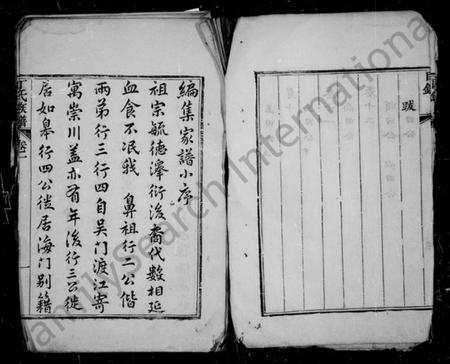 跋
編集家譜小序
祖宗毓德澤衍後裔代數相延
血食不泯我 鼻祖行二公偕
兩弟行三行四自吳門渡江寄
寓崇川蓋亦有年後行三公徙
居如皋行四公徙居海門別籍
氏族譜 卷一
FamilySearch International